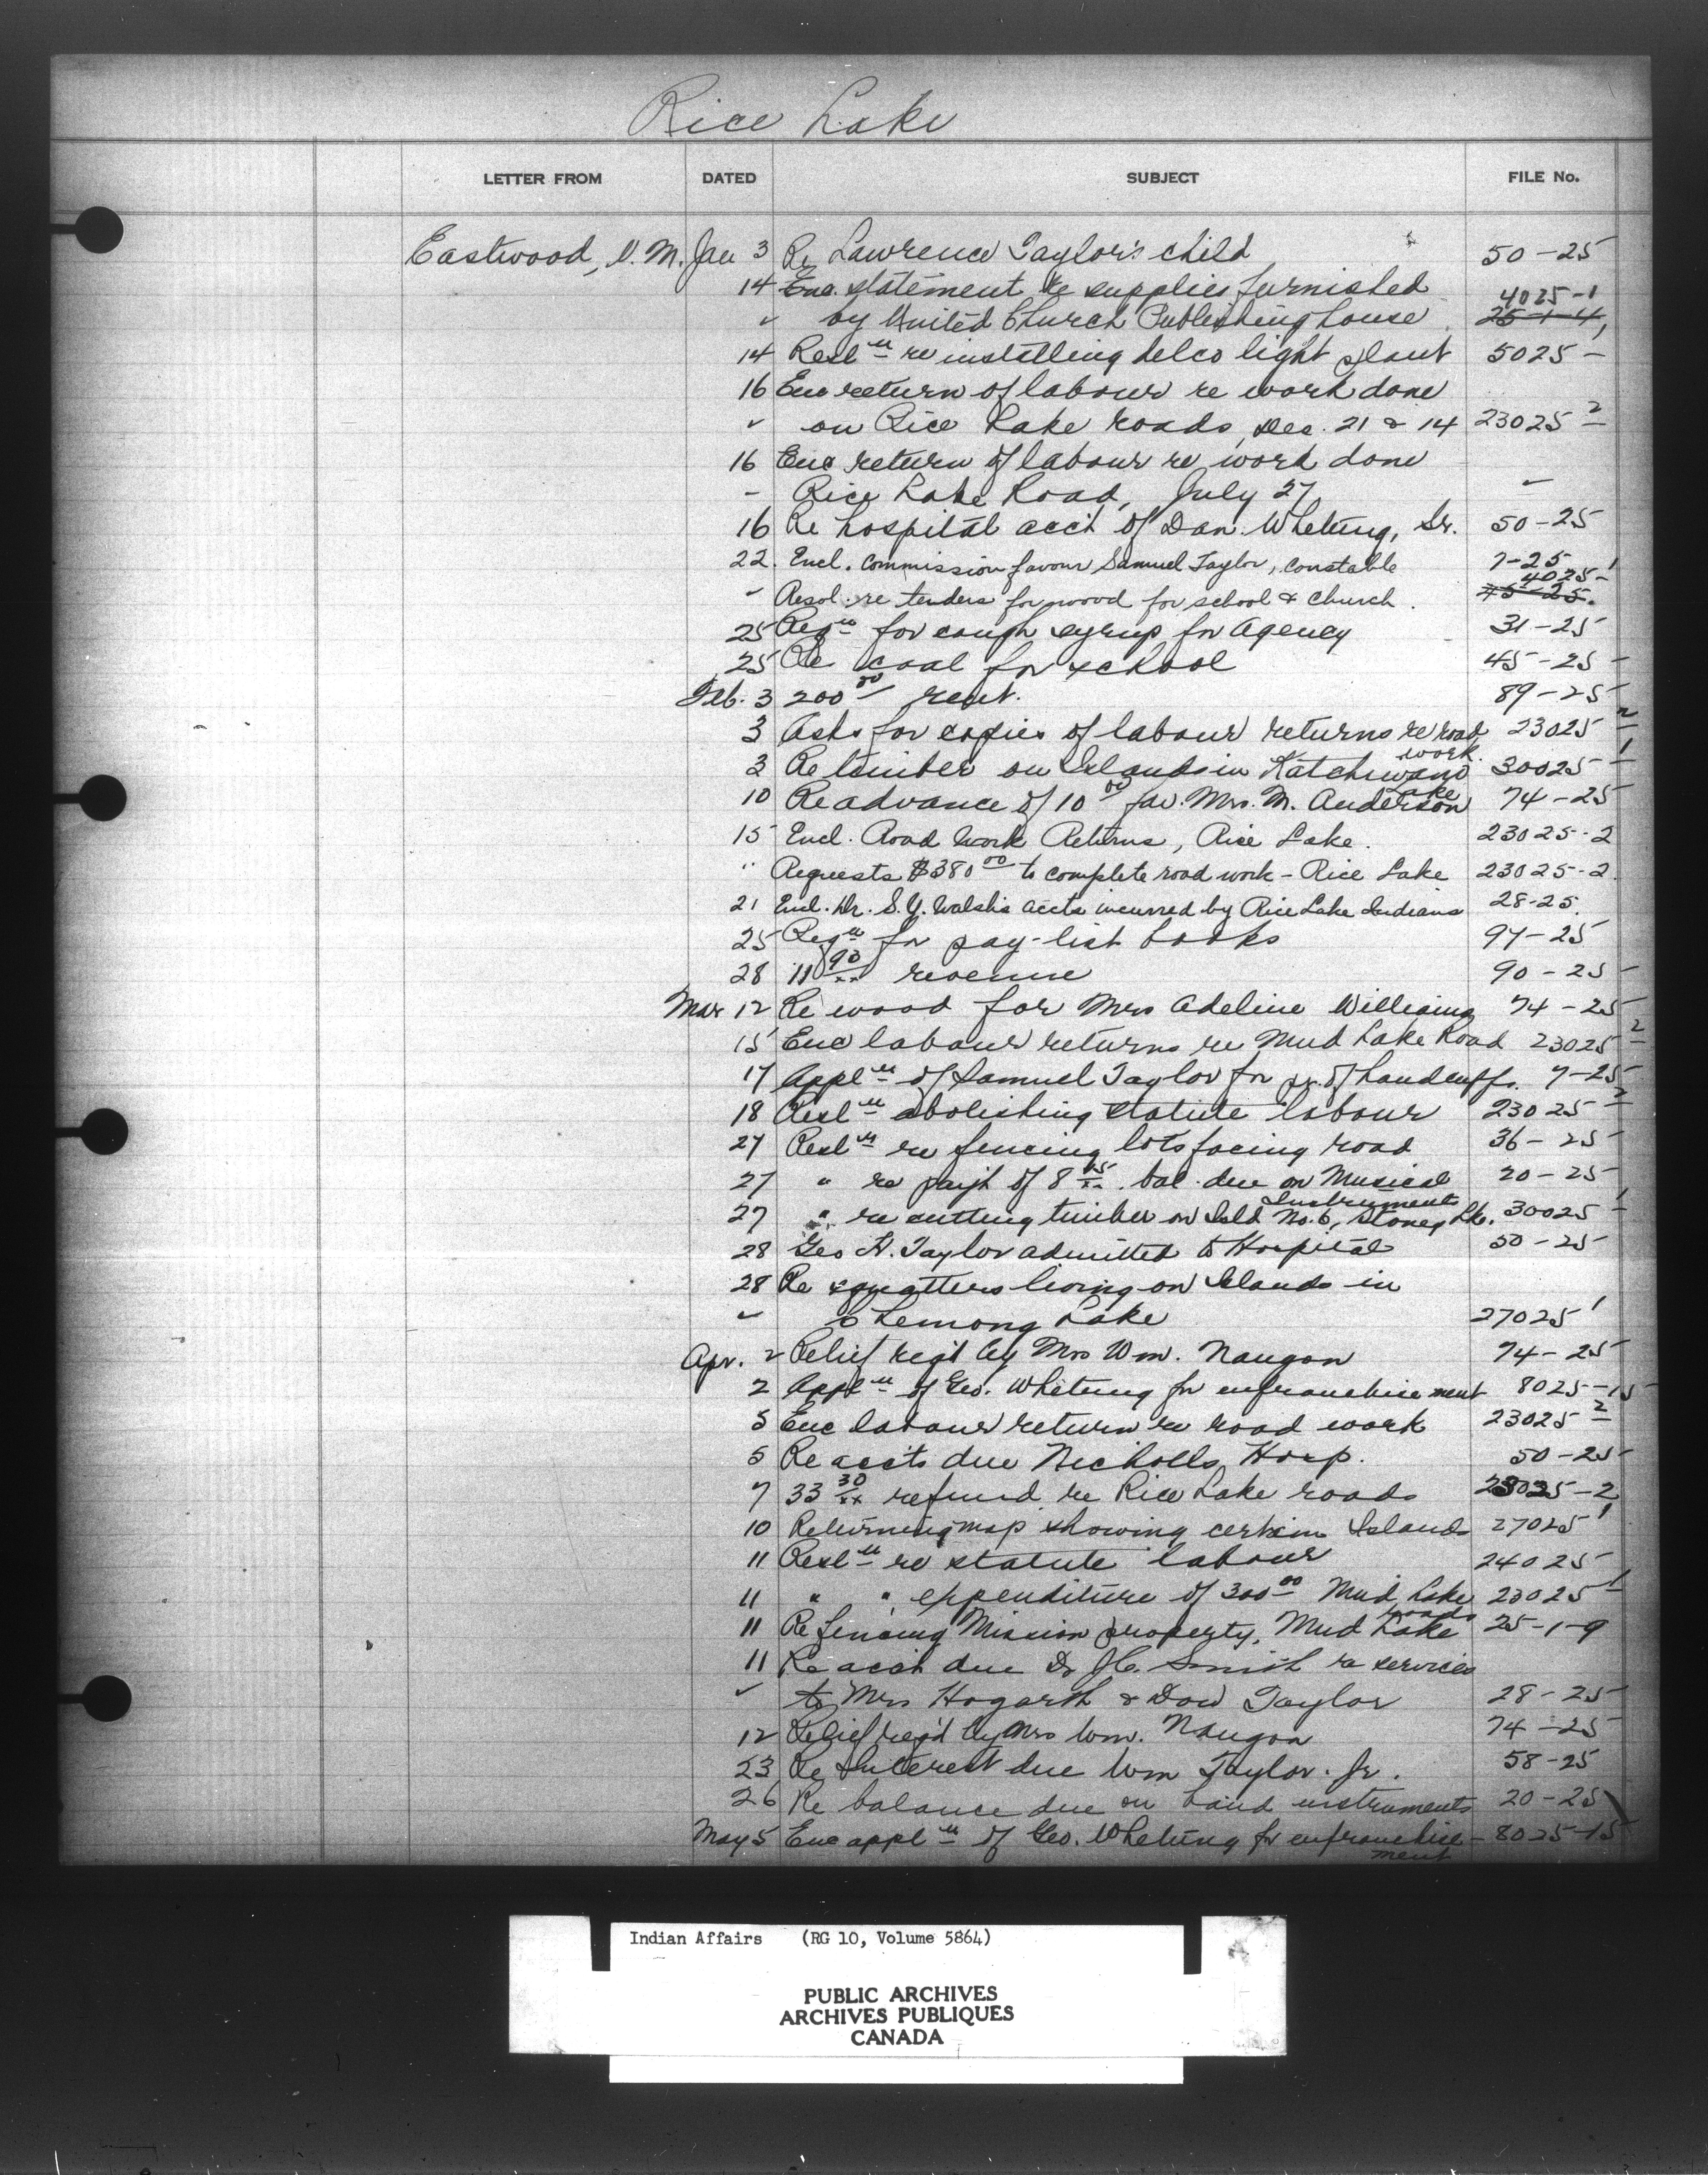 Rice Lake
LETTER FROM DATED SUBJECT FILE No.
Eastwood, V. M. Jan 3 Re Lawrence Taylor's child 50-25
14 Enc. statement re supplies furnished 4025-1
" by United Church Publishing house 25-1-4
14 Resl'n re installing delco light plant 5025-1
16 Enc return of labour re work done
" on Rice Lake roads, Dec. 21 & 14 23025-2
16 Enc return of labour re work done
" Rice Lake Road, July 27 "
16 Re hospital acc't of Dan. Whetung, Sr. 50-25
22. Encl. Commission favour Samuel Taylor, constable 7-25
" Resol. re tenders for wood for school & church. 4025-1
45-25.
25 Reqn for cough syrup for Agency 31-25
25 Re coal for school 45-25
Feb. 3 200 00 rent. 89-25
3 Asks for copies of labour returns re road work. 23025-2
3 Re timber on Islands in Katchiwano Lake 30025-1
10 Re advance of 10 00 fav. Mrs. M. Anderson 74-25
15 Encl. Road Work Returns, Rice Lake. 23025-2
" Requests $380 00 to complete road work - Rice Lake 23025-2.
21 Encl. Dr. S.Y. Walsh's accts incurred by Rice Lake Indians 28-25.
25 Reqn for pay-list books 97-25
28 11 90/xx revenue 90-25
Mar 12 Re wood for Mrs Adeline Williams 74-25
15 Enc labour returns re Mud Lake Road 23025-2
17 Appl'n of Samuel Taylor for pr. of handcuffs. 7-25
18 Resl'n abolishing statute labour 23025-2
27 Resl'n re fencing lots facing road 36-25
27 " re pay't of 8 45/xx. bal. due on Musical Instruments 20-25
27 " re cutting timber on Isld No. 6, Stoney Lk. 30025-1
28 Geo H. Taylor admitted to Hospital 50-25
28 Re squatters living on Islands in
" Chemong Lake 27025-1
Apr. 2 Relief req'd by Mrs Wm. Naugon 74-25
2 Appl'n of Geo. Whetung for enfranchisement 8025-15
5 Enc labour return re road work 23025-2
5 Re acc'ts due Nicholls Hosp. 50-25
7 33 30/xx refund re Rice Lake roads 23025-2
10 Returning map showing certain Islands 27025-1
11 Resl'n re statute labour 24025
11 " " expenditure of 300 00 Mud Lake roads 23025-1
11 Re fencing Mission property, Mud Lake 25-1-9
11 Re acc't due Dr J.C. Smith re services
" to Mrs Hogarth & Dow Taylor 28-25
12 Relief req'd by Mrs Wm. Naugon 74-25
23 Re Interest due Wm Taylor. Jr. 58-25
26 Re balance due on band instruments 20-25
May 5 Enc appl'n of Geo. Whetung for enfranchise- 8025-15
ment
Indian Affairs (RG 10, Volume 5864)
PUBLIC ARCHIVES
ARCHIVES PUBLIQUES
CANADA